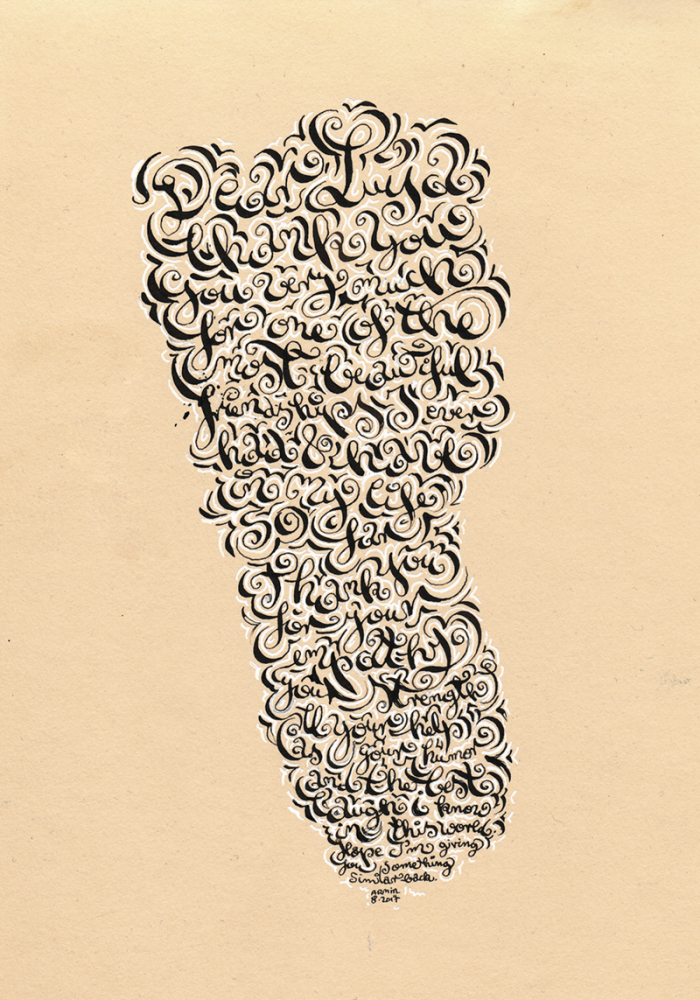 Dear Luja
thank you
you very much
for one of the
most beautiful
friendships I ever
had & have
in my life
so far
Thank you
for your
empathy
your strength
all your help
as your humor
and the best
laugh i know
in this world.
Hope I'm giving
you something
similar back.
armin
8.2017